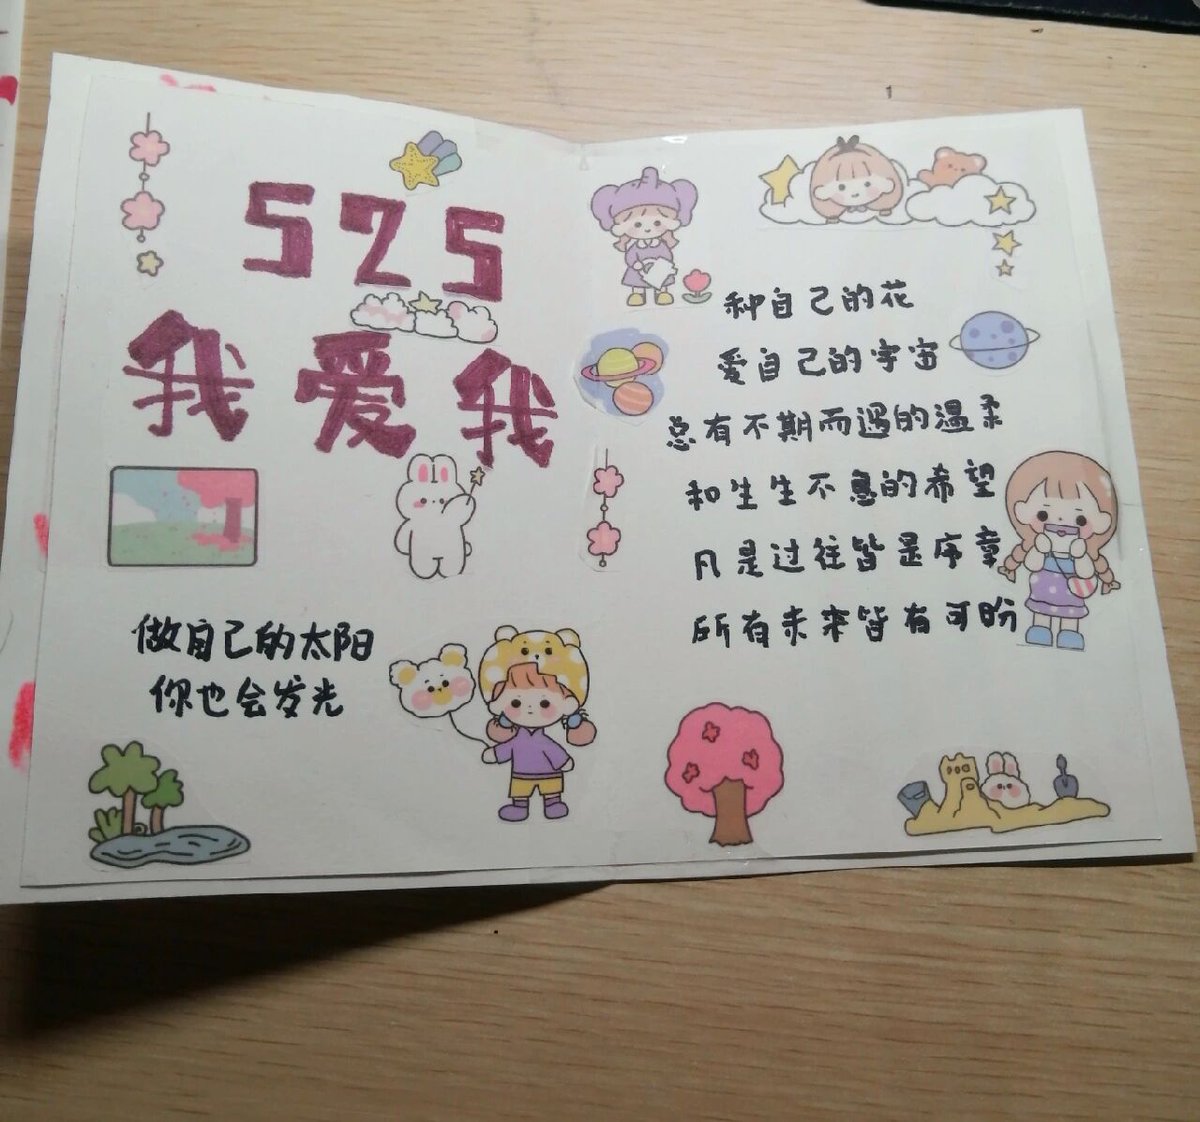 525
我爱我
做自己的太阳
你也会发光
种自己的花
爱自己的宇宙
总有不期而遇的温柔
和生生不息的希望
凡是过往皆是序章
所有未来皆有可盼